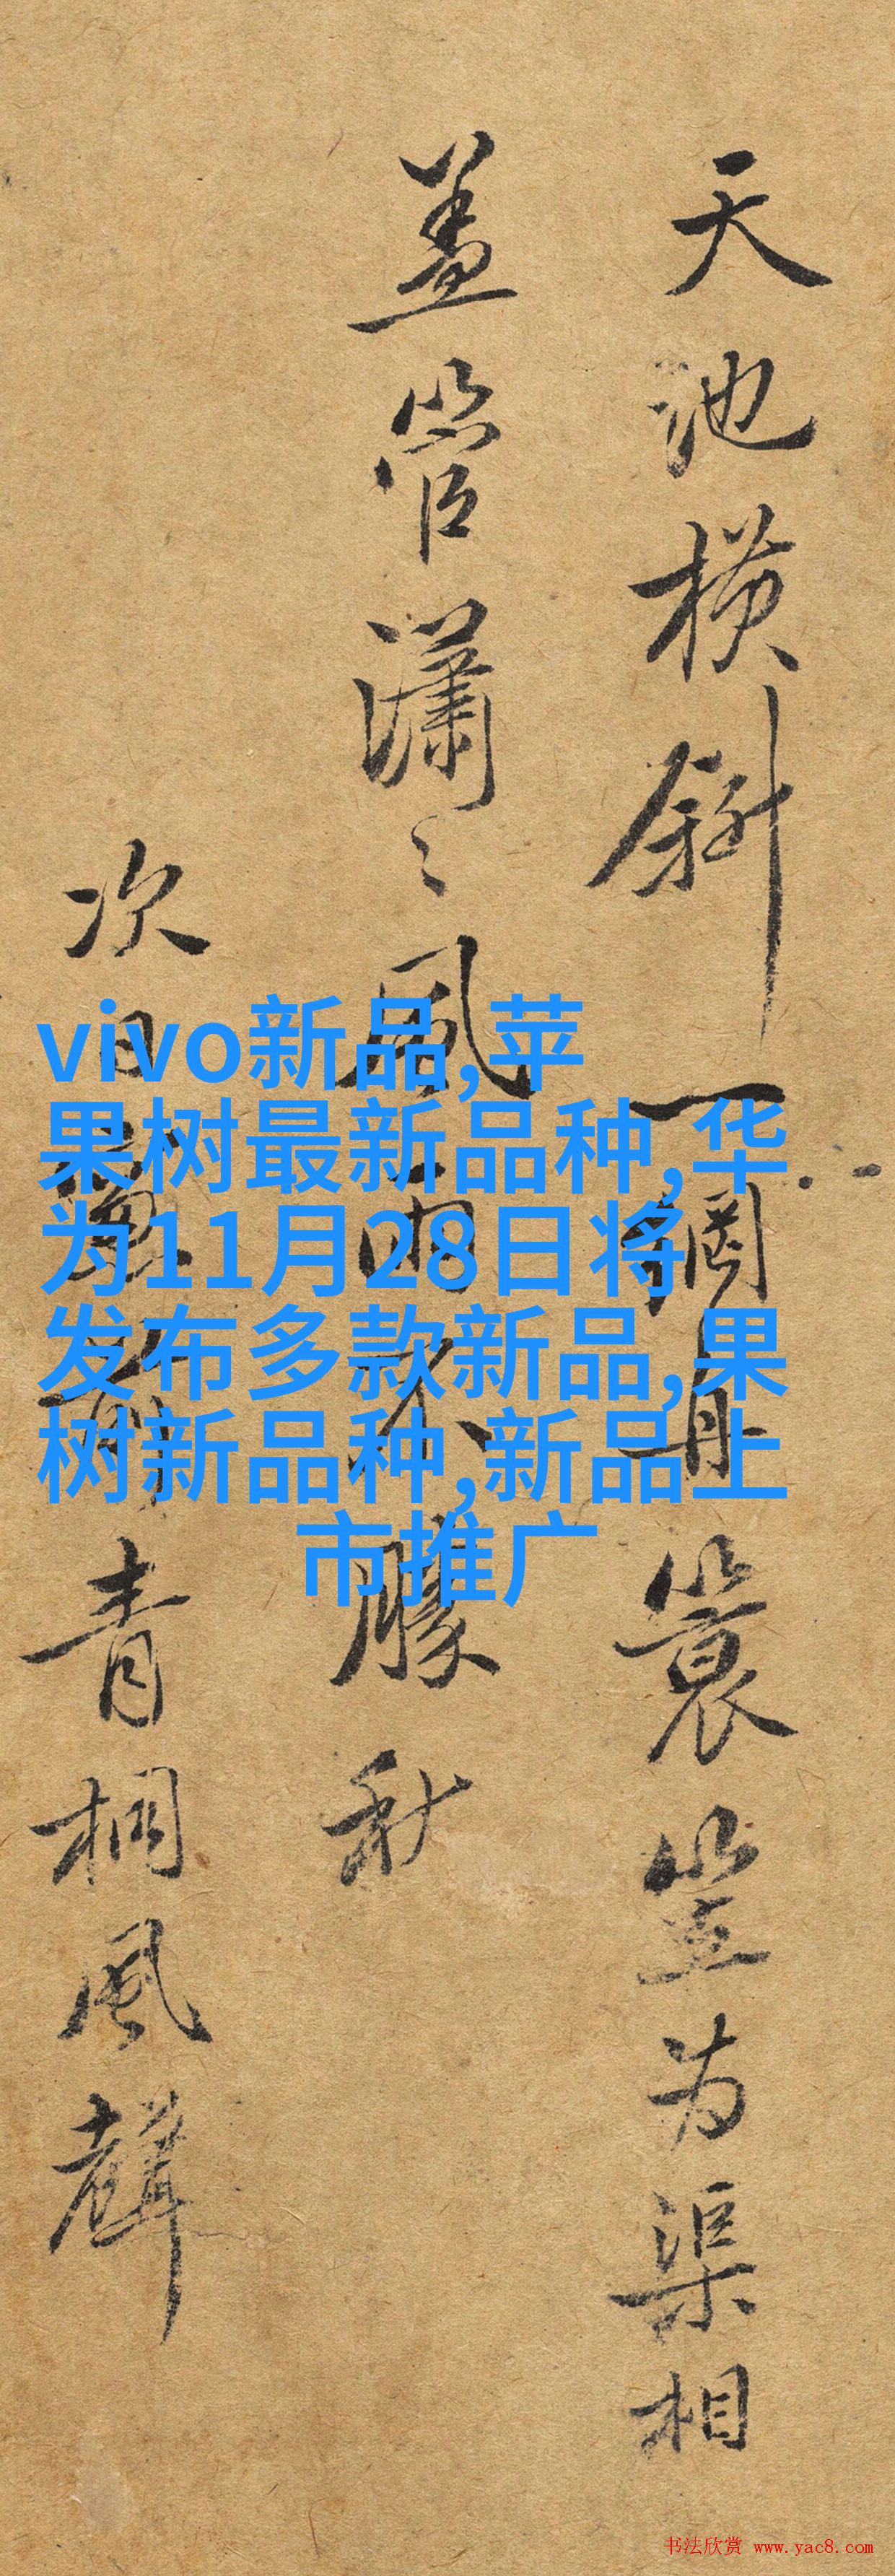 天池横斜一舟簑笠为渠相
盖管瀟々風雨不勝秋
次日青桐風聲
vivo新品,苹
果树最新品种,华
为11月28日将
发布多款新品,果
树新品种,新品上
市推广
书法欣赏 www.yac8.com